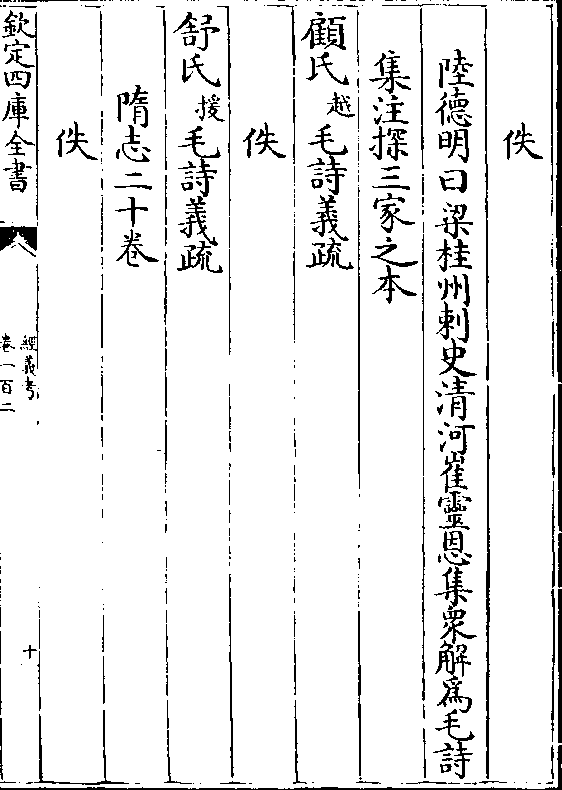 佚
陸德明曰梁桂州刺史清河崔靈恩集衆解爲毛詩
集注探三家之本
顧氏越毛詩義疏
佚
舒氏援毛詩義疏
隋志二十卷
佚
欽定四庫全書
經義考
卷一百二
十